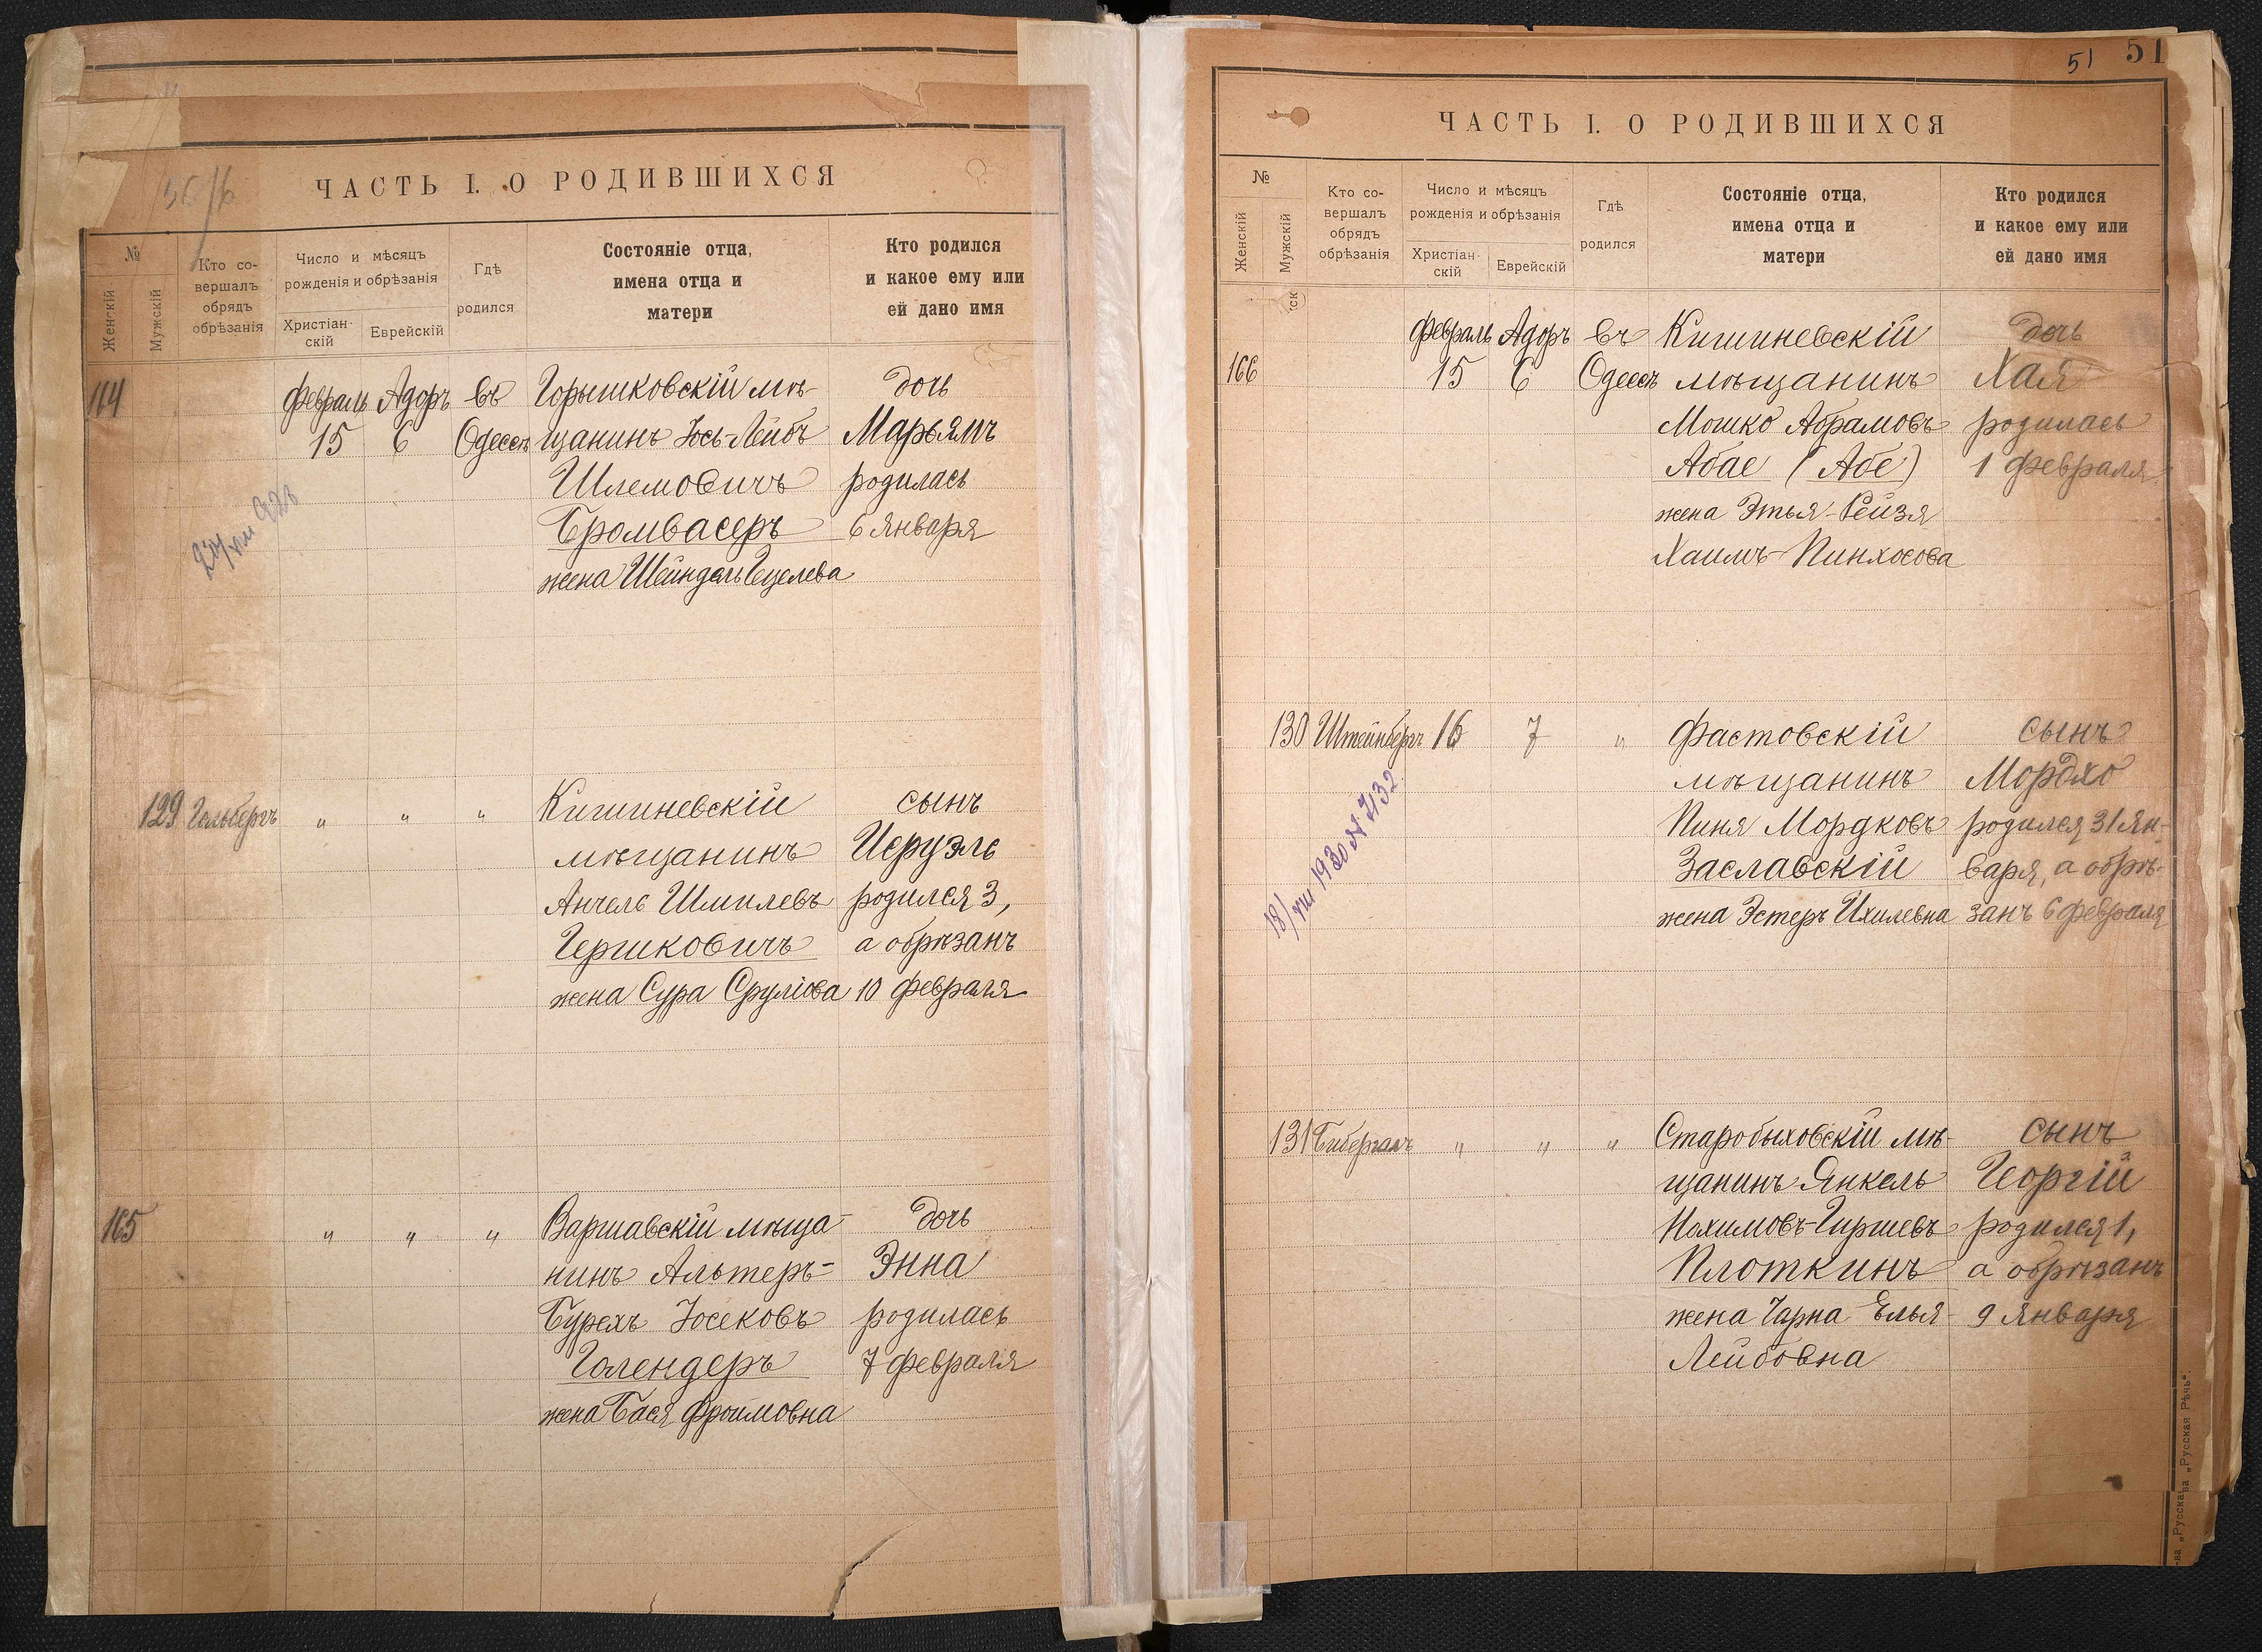 ЧАСТЬ I. О РОДИВШИХСЯ
№
Женскій
Мужскій
Кто со-
вершалъ
обрядъ
обрѣзанія
Число и мѣсяцъ
рожденія и обрѣзанія
Христіан-
скій
Еврейскій
Гдѣ
родился
Состояніе отца,
имена отца и
матери
Кто родился
и какое ему или
ей дано имя
164
Февраль Адоръ въ Горышковскій мѣ- дочь
15 6 Одессѣ щанинъ Іось-Лейбъ Марьямъ
Шлемовичъ родилась
Бромвасеръ 6 Января
жена Шейндель Гецелева
129 Гольбергъ " " " Кишиневскій сынъ
мѣщанинъ Исруэль
Анчель Шмилевъ родился 3,
Гершковичъ а обрѣзанъ
жена Сура Сруліова 10 февраля
165 " " " Варшавскій мѣща- дочь
нинъ Альтеръ- Энна
Бурехъ Іосековъ родилась
Голендеръ 7 февраля
жена Бася Фроимовна
51 51
ЧАСТЬ I. О РОДИВШИХСЯ
№
Женскій
Мужскій
Кто со-
вершалъ
обрядъ
обрѣзанія
Число и мѣсяцъ
рожденія и обрѣзанія
Христіан-
скій
Еврейскій
Гдѣ
родился
Состояніе отца,
имена отца и
матери
Кто родился
и какое ему или
ей дано имя
Февраль Адоръ въ Кишиневскій дочь
166 15 6 Одессѣ мѣщанинъ Хая
Мошко Абрамовъ родилась
Абае (Абе) 1 февраля
жена Этья-Рейзя
Хаимъ-Пинхосова
130 Штейнбергъ 16 7 " Фастовскій сынъ
мѣщанинъ Мордхо
Пиня Мордковъ родился 31 Ян-
Заславскій варя, а обрѣ-
жена Эстеръ Ихилевна занъ 6 февраля
18/VIII 1930 N 7132
131 Бибергалъ " " " Старобыховскій мѣ- сынъ
щанинъ Янкель Георгій
Нохимовъ-Гиршевъ родился 1,
Плоткинъ а обрѣзанъ
жена Чарна Елья- 9 Января
Лейбовна
„Русская Рѣчь“